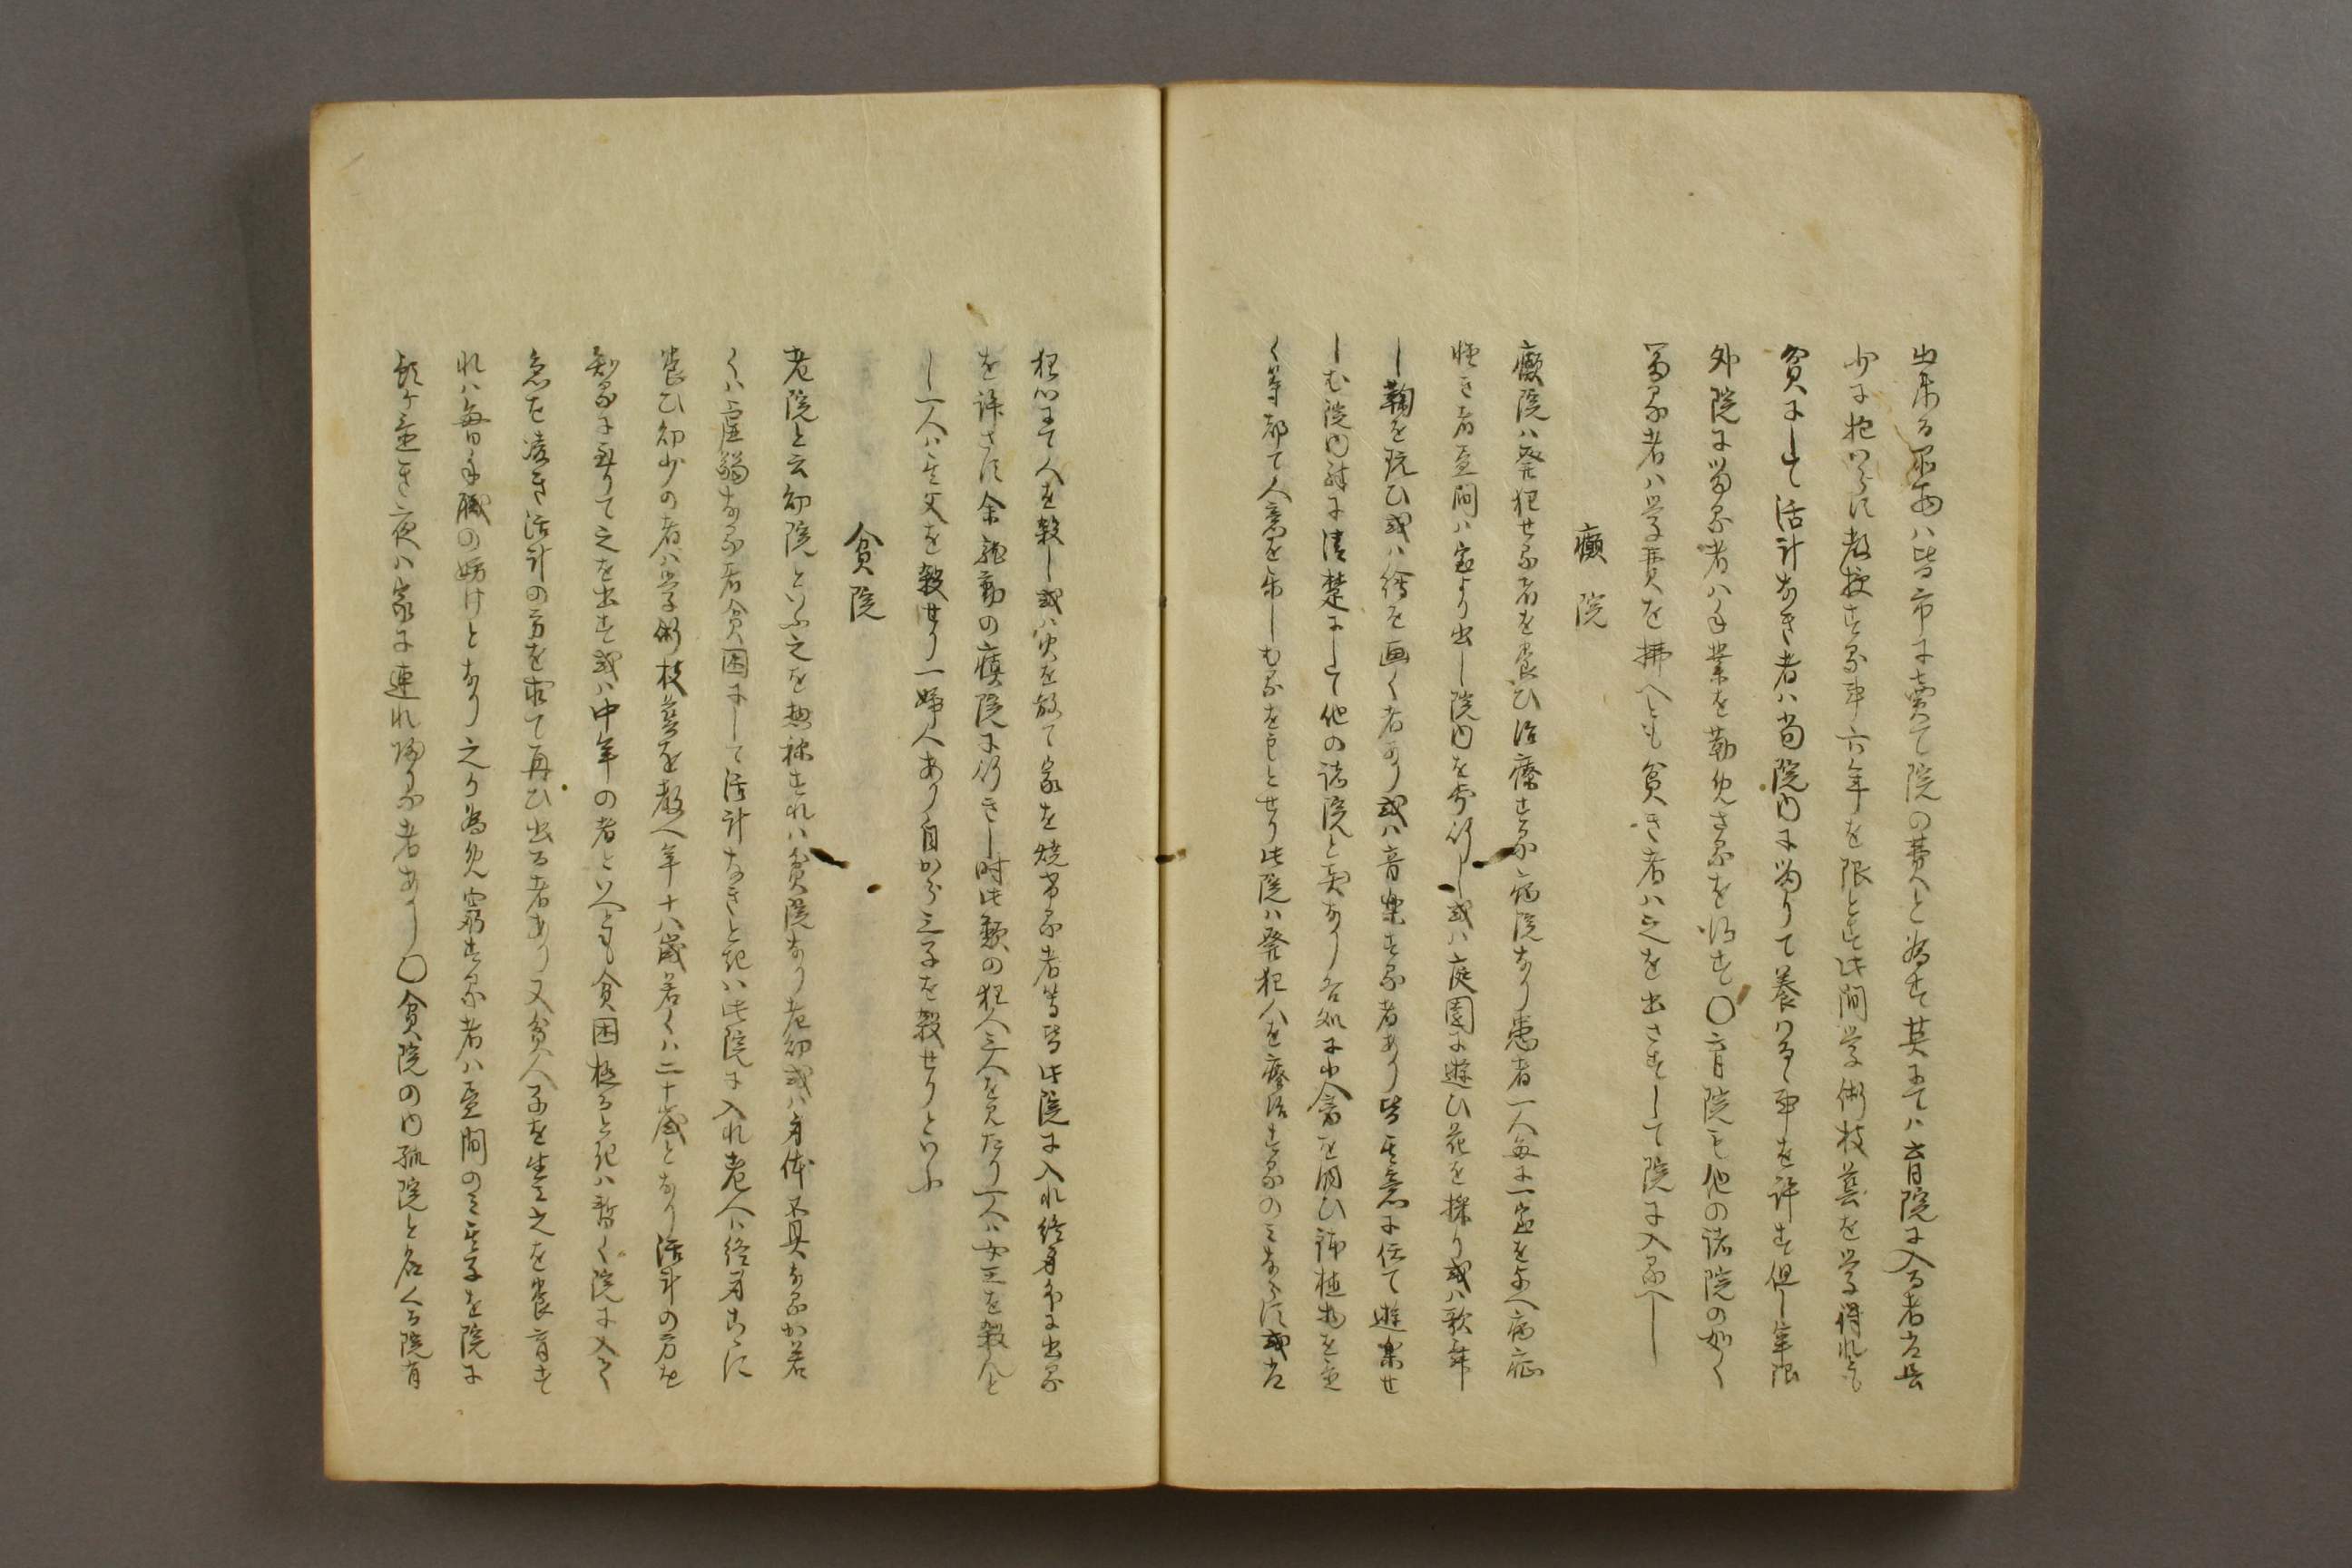 出来る器物ハ皆市に売て院の費へと為す其にてハ盲院に入る者尤長
少に抱ハらす教授する事六年を限とす此間学術技芸を学得れとも
貧にして活計なき者ハ尚院内に留りて養わるゝ事を許す但し年限
外院に留る者ハ手業を勤めさるを得す〇盲院も他の諸院の如く
富る者ハ学費を拂へとも貧き者ハ之を出さすして院に入るへし
癲院
癲院ハ発狂せる者を養ひ治療する病院なり患者一人毎に一室を与へ病症
軽き者昼間ハ室より出し院内を歩行し或ハ庭園に遊ひ花を採り或ハ歌舞
し鞠を玩ひ或ハ絵を画く者あり或ハ音楽する者あり皆其意に任て遊楽せ
しむ院内殊に清楚にして他の諸院と異なり各処に小禽を囲ひ諸植物を並
く等都て人意を楽しむるを旨とせり此院ハ発狂人を療治するのミならす或ハ
狂心にて人を殺し或ハ火を放て家を焼ける者等皆此院に入れ終身外に出る
を許さす余龍動の癲院に行きし時此類の狂人三人を見たり一人ハ女王を殺んと
し一人ハ其父を殺せり一婦人あり自から三子を殺せりといふ
貧院
老院と云幼院といふ之を惣称すれハ貧院なり老幼或ハ身体不具なるか若
くハ虚弱なる者貧困にして活計なきときハ此院に入れ老人ハ終身こゝに
養ひ幼少の者ハ学術技芸を教へ年十八歳若くハ二十歳となり活計の方を
知るに至りて之を出す或ハ中年の者といへとも貧困極るときハ暫く院に入て
急を凌き活計の方を求て再ひ出る者あり又貧人子を生之を養育す
れハ毎日手職の妨けとなり之か為め窮する者ハ昼間のミ其子を院に
預ケ置き夜ハ家に連れ帰る者あり〇貧院の内孤院と名くる院有